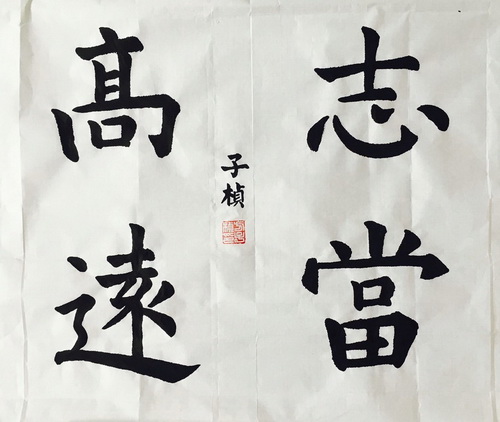 志當
髙遠
子楨